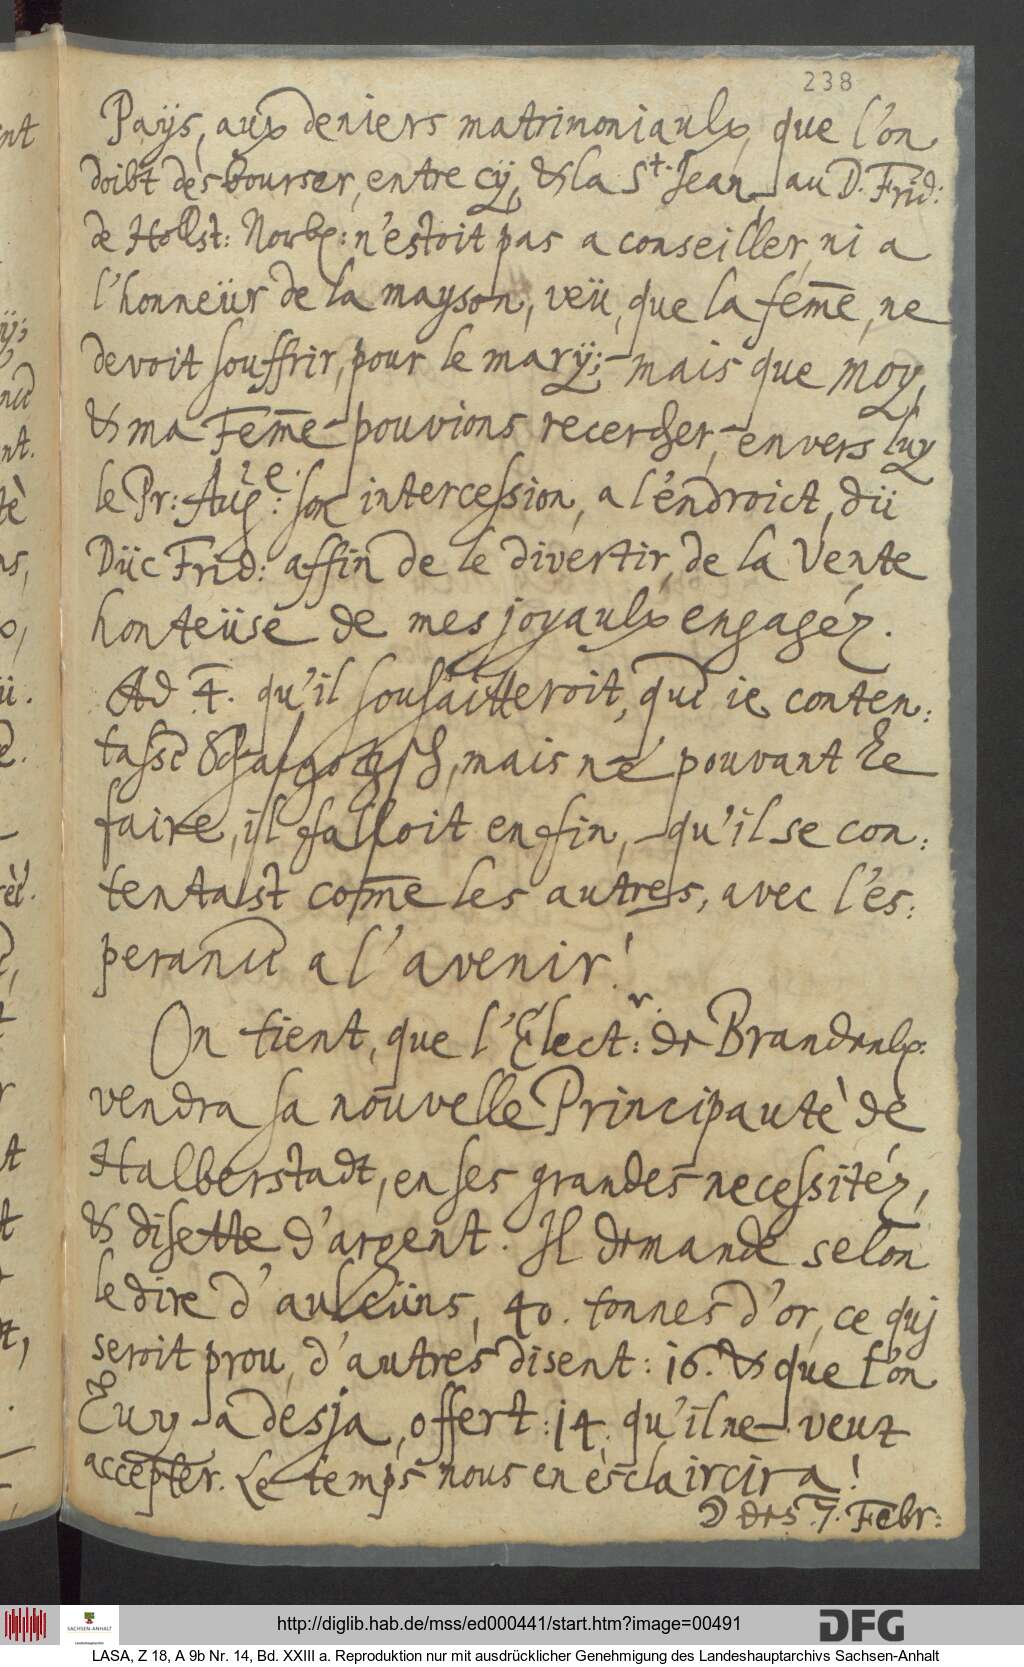 238
Paÿs, aux deniers matrimoniaulx, que l'on
doibt desbourser, entre cÿ, & la St. Jean, au D. Frid:
de Hollst: Norb: n'estoit pas a conseiller, ni a
l'honneür de la mayson, veü, que la fem̄e, ne
devoit souffrir, pour le marÿ; mais que moy,
& ma Fem̄e pouvions recercher, envers luy
le Pr: Aug:e son intercession, a l'endroict, dü
Düc Frid: affin de le divertir, de la Vente
honteüse de mes joyaulx engagéz.
Ad 4. qu'il souhaitteroit, que ie conten:
tasse mais ne pouvant le
faire, il falloit enfin, qu'il se con:
tentast com̄e les autres, avec l'es:
perance a l'avenir!
On tient, que l'Elect:r. de Brandenb:
vendra sa nouvelle Principautè de
Halberstadt, en ses grandes necessitéz,
& disette d'argent. Il demande selon
le dire d'aulcüns, 40. tonnes d'or, ce quj
seroit prou, d'autres disent: 16. & que l'on
luy a desja, offert: 14. qu'il ne veut
accepter. Le temps nous en esclaircira!
☽ des 7. Febr:
http://diglib.hab.de/mss/ed000441/start.htm?image=00491
SACHSEN-ANHALT
DFG
LASA, Z 18, A 9b Nr. 14, Bd. XXIII a. Reproduktion nur mit ausdrücklicher Genehmigung des Landeshauptarchivs Sachsen-Anhalt